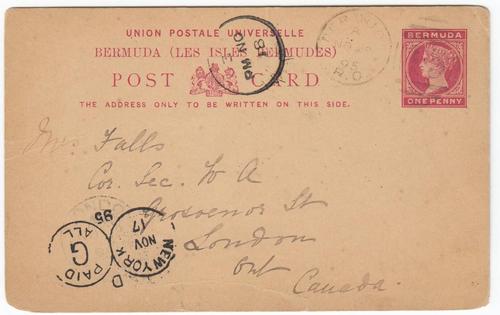 UNION POSTALE UNIVERSELLE
BERMUDA (LES ISLES BERMUDES)
POST CARD
THE ADDRESS ONLY TO BE WRITTEN ON THIS SIDE.
BERMUDA
ONE PENNY
PM
NO
18
95
Mrs Falls
Cor. Sec. W A
Grosvenor St
London
Ont
Canada.
PAID
G
ALL
NEW YORK
NOV
17
95
D